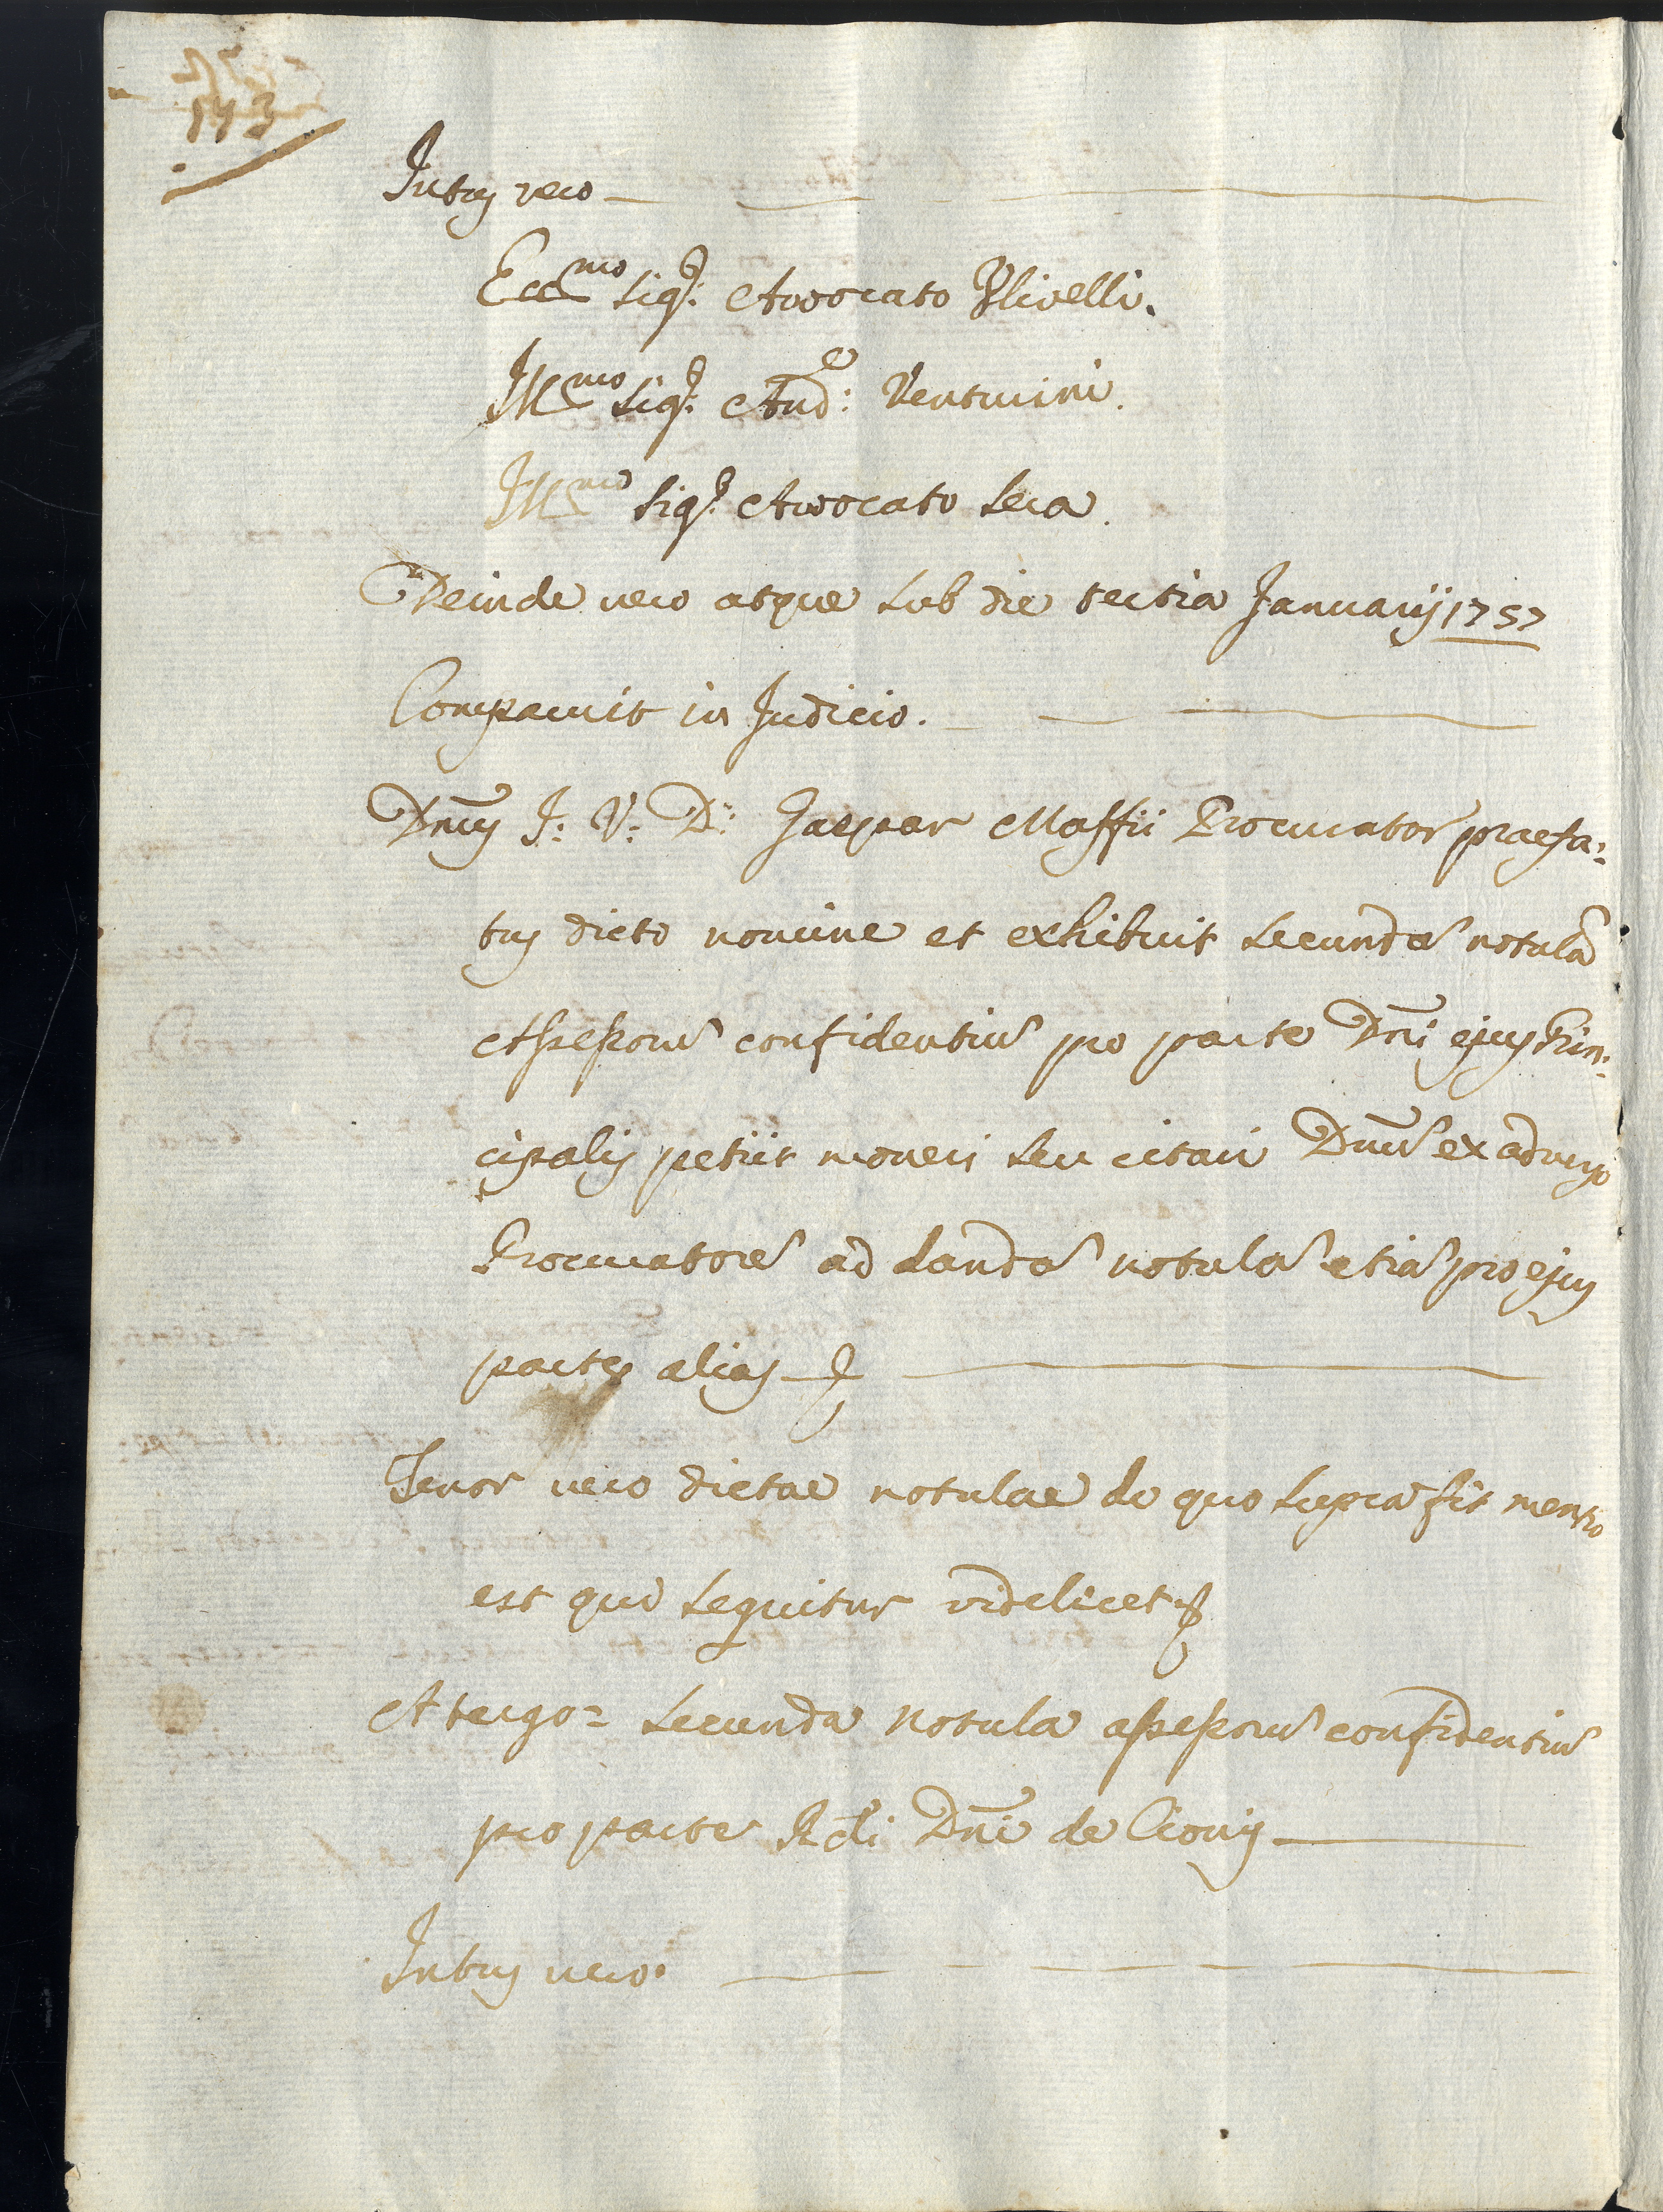 143
Intus vero
Ecc.mo Sigr: Avvocato Ulivelli.
Ill.mo Sigr: Aud.e: Venturini.
Ill.mo Sigr: Avvocato Sera.
Deinde vero atque sub die tertia Januarij 1757
Comparuit in Judicio.
Dnus J: V: D: Gaspar Maffii Procurator praefa:
tus dicto nomine et exhibuit secundã notulã
Assessorũ confidentiũ pro parte Dñi ejus Prin:
cipalis petiit moneri seu citari Dnũ ex adverso
Procuratorẽ ad dandã notulã etiã pro ejus
parte alias
Tenor vero dictae notulae de quo supra fit mentio
est qui sequitur videlicet
A tergo = Secunda Notula assessorũ confidentiũ
pro parte Rdi Dñi de Cionis
Intus vero.